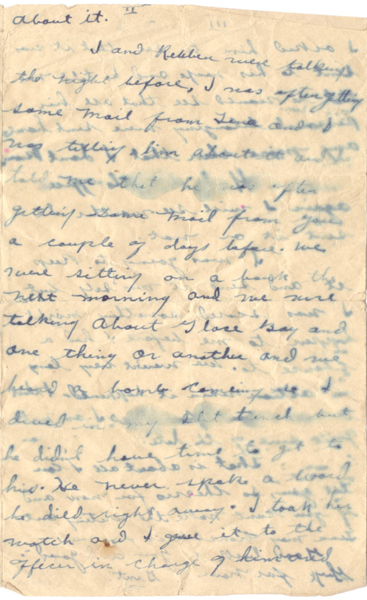 About it. II
I and Rebben were talking
the night before, I was after getting
some mail from Lena and I
was telling him about it and
told me that he was after
getting some mail from you
a couple of days before. We
were sitting on a bank the
next morning and we were
talking About Glace Bay and
one thing or another and we
heard a bomb coming so I
dived in my slit trench but
he didn't have time to get to
his. He never spoke a word
he died right away. I took his
watch and I give it to the
officer in charge of him and